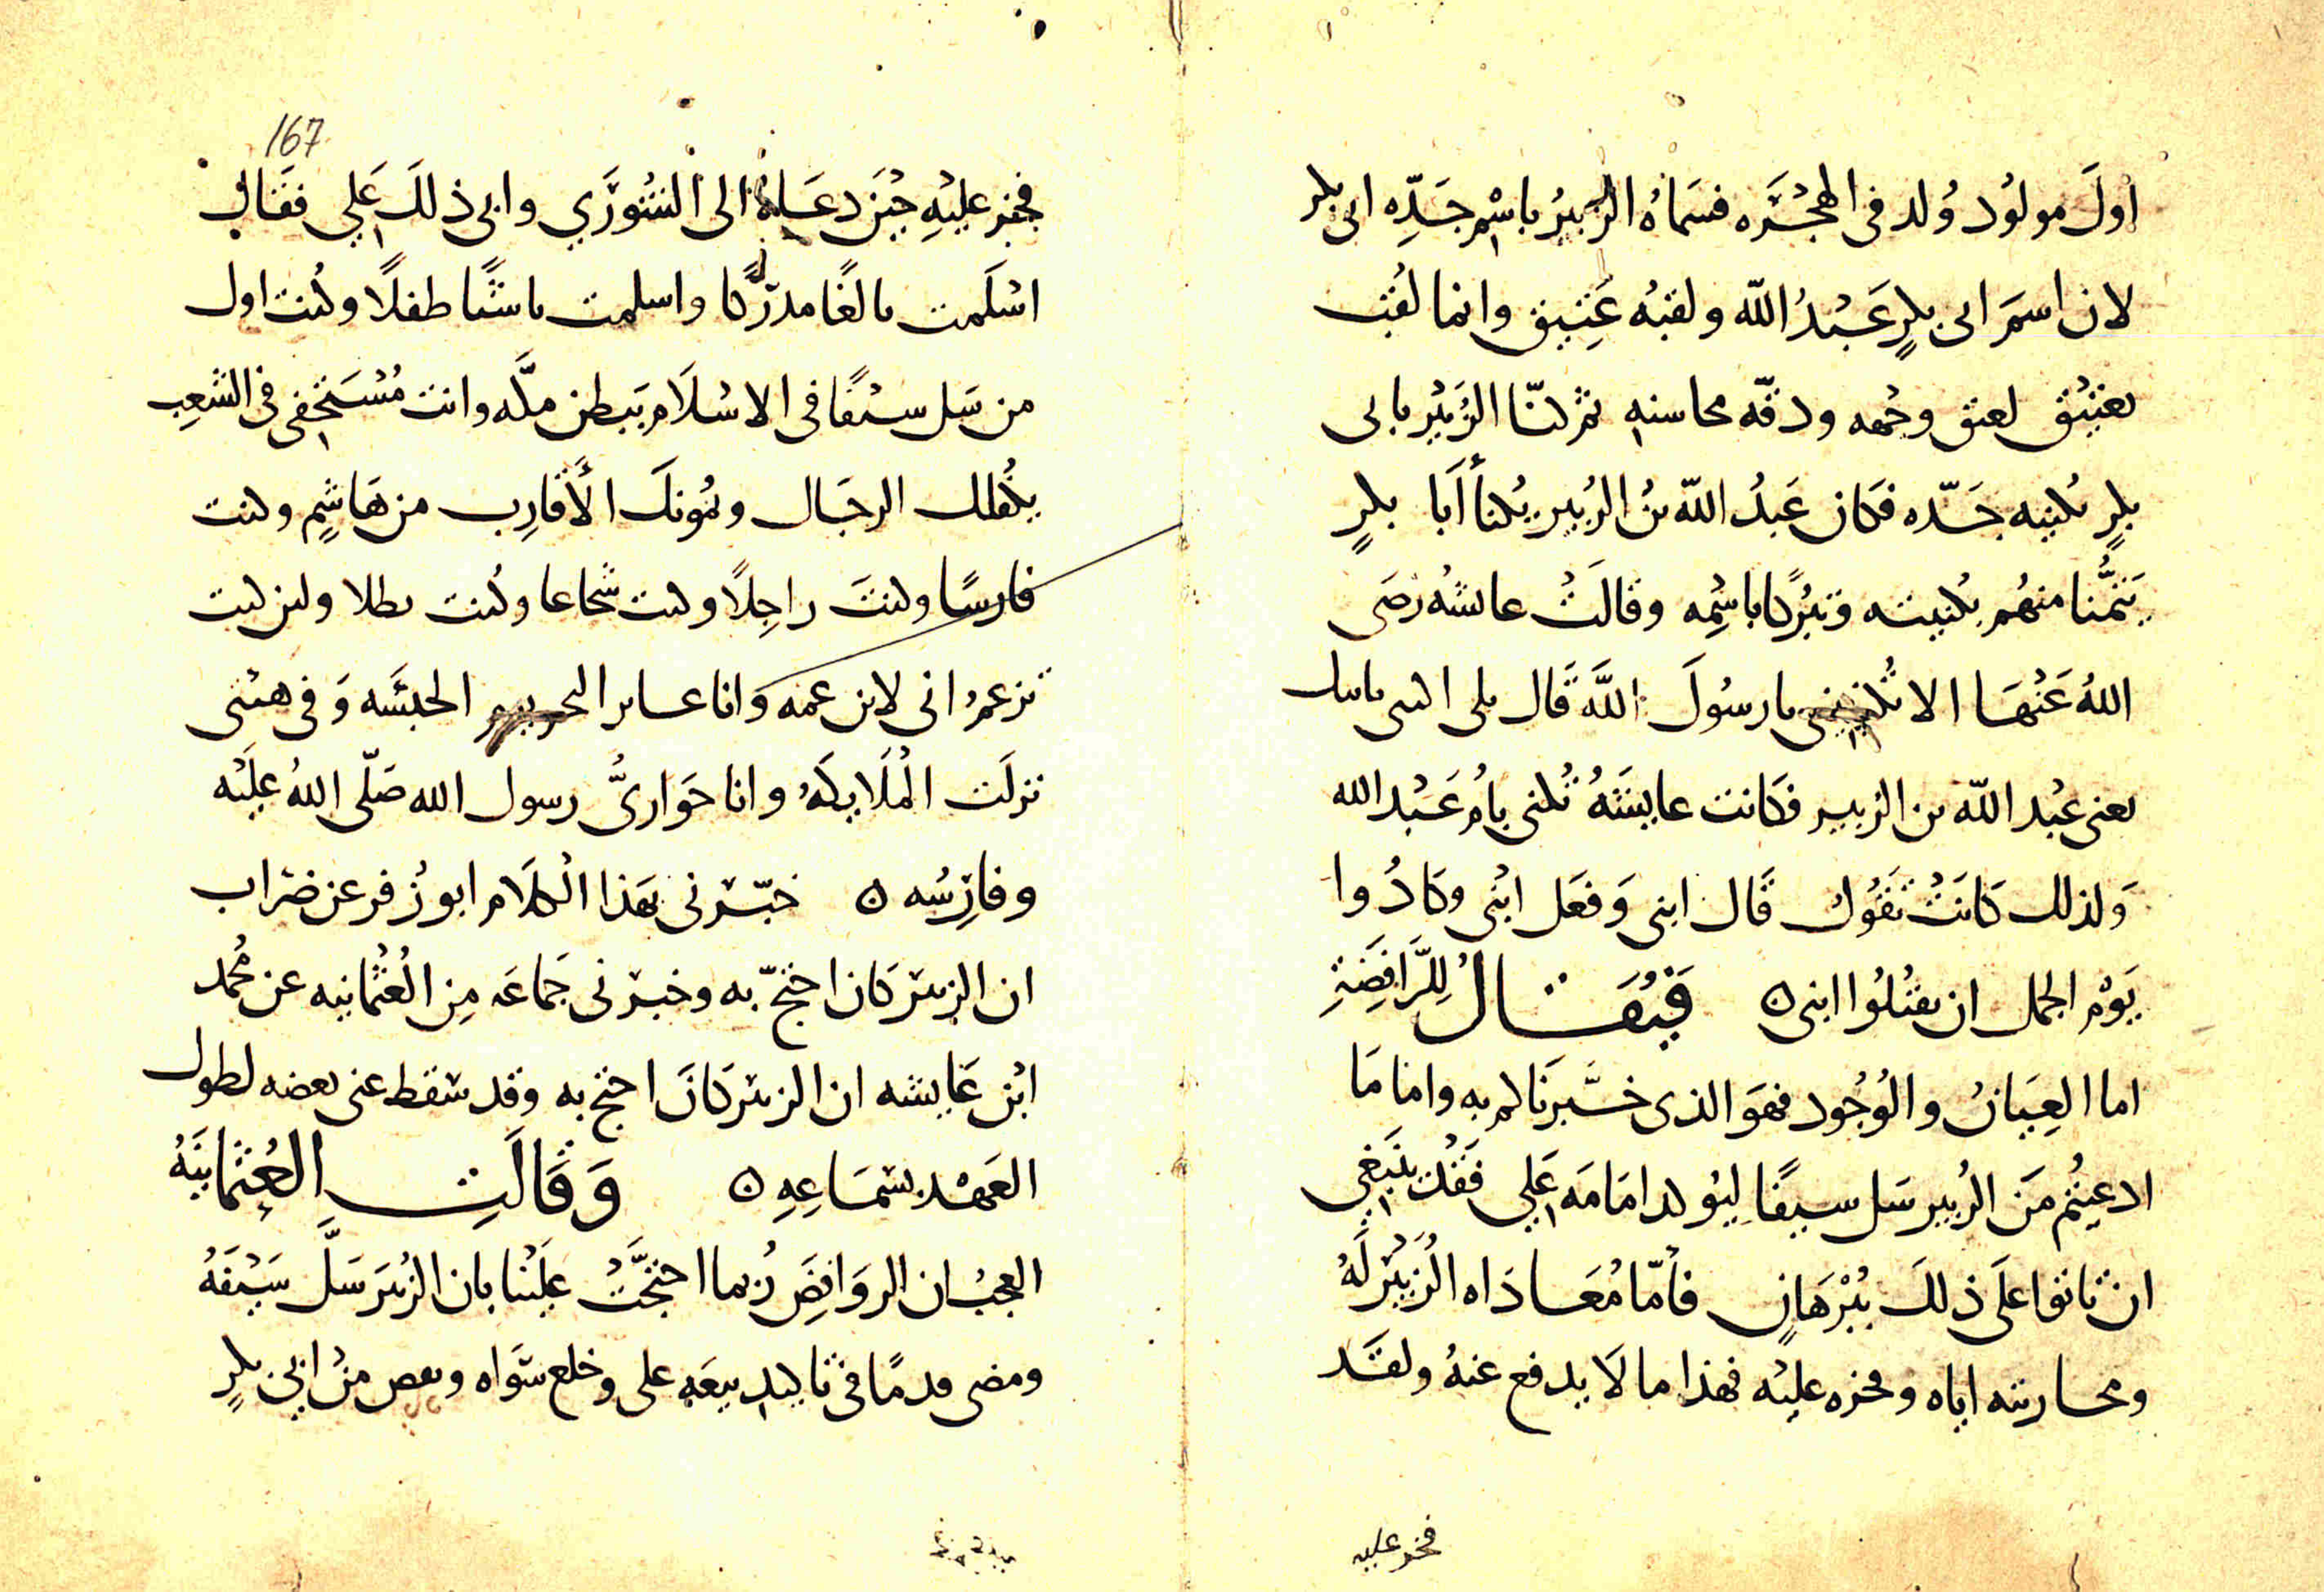 اولَ مولُود وُلد فى الهجْرَه فسَماهُ الزبيرُ باسْم جَدِّه ابى بكر
لان اسمَ ابى بكرٍ عَبْدُ اللّه ولقبُه عَتِيق وانما لُقب
بعتيْق لعتق وجْهه ودقّه محاسنه ثم كنّا الزُبَيْر بابى
بكرٍ بكنيه جَدّه فكان عَبدُ اللّه بنُ الزُبير يُكنأ أَبا بكرٍ
تيَمُّنا منهُم بكنيته وتبرُّكا باسْمِه وقالَتْ عائشهُ رضَى
اللهُ عَنْهَا الا تُكنينى يا رسُولَ اللَّه قَال بلى اكتنى بابنك
يعنى عبْد اللّه بن الزبير فكَانت عايشَةُ تُكنى بامُ عَبْد الله
وَلذلك كَانَتْ تَقُول قَال ابنى وَفعَل ابْنى وكَادُوا
يَوْم الجمل ان يقتُلُوا ابنى ه فَيُقَــال لِلرَّافِضَةِ
اما العِيَانُ والوُجُود فهوَ الذى خَبَّرنَاكم به واما مَا
ادعيتُم مَن الزُبير سَل سيفًا ليُوكد امَامَه عَلِي فقُلْ ينْبَغي
ان تاتوا علَى ذلكَ بُبْرْهَانٍ فأمّا مُعَــادَاه الزُبَيْر لَهُ
ومحاربته اياه وفخره عليْه فهذا ما لَا يدفع عنهُ ولقَد
فخر عليه
167
فخر عليْهِ حيْنَ دعَــاهُ الى الشُورَي وابى ذلكَ عَلي فقَال
اسْلَمت بالغًا مدركًا واسلمت ناشئًا طفلًا وكُنت اول
من سَل سيْفًا فى الاسْلَام ببَطن مكَّه وانت مُسْتَخْفى فى الشعِب
يكْفُلك الرجَال ويمُونكَ الأَقارِب من هَاشِمٍ وكنت
فارسًا وكنتَ راجِلًا وكنت شجاعا وكُنت بطلا ولئن كنت
تزعم انى لابن عمه وانا عابر البحر يوم الحبشَه وَفى هيئتى
نزلَت الْمُلَايكَهُ وانا حَوَارىُّ رسول الله صَلّى اللهُ علَيْه
وفارِسُه ه خبّرنى بهَذا الْكلَام ابو زُفر عن ضراب
ان الزبير كَان احتجّ به وخبرنى جَماعَه مِن الْعُثْمانيه عن مُحمد
ابْن عَايشه ان الزبير كَانَ احتج به وقد سَقط عنى بعضه لطول
العَهْد بسَمَاعِهِ ه وَقَالَتِ العُثمانيَّهُ
العجبُ ان الروَافِضَ رُبما احتجَّتْ علَيْنا بان الزُبيرَ سَلَّ سَيْفَهُ
ومضى قدمًا فى تاكيد بيعَه على وخلع سَوَاه ونقص منْ ابى بكرٍ